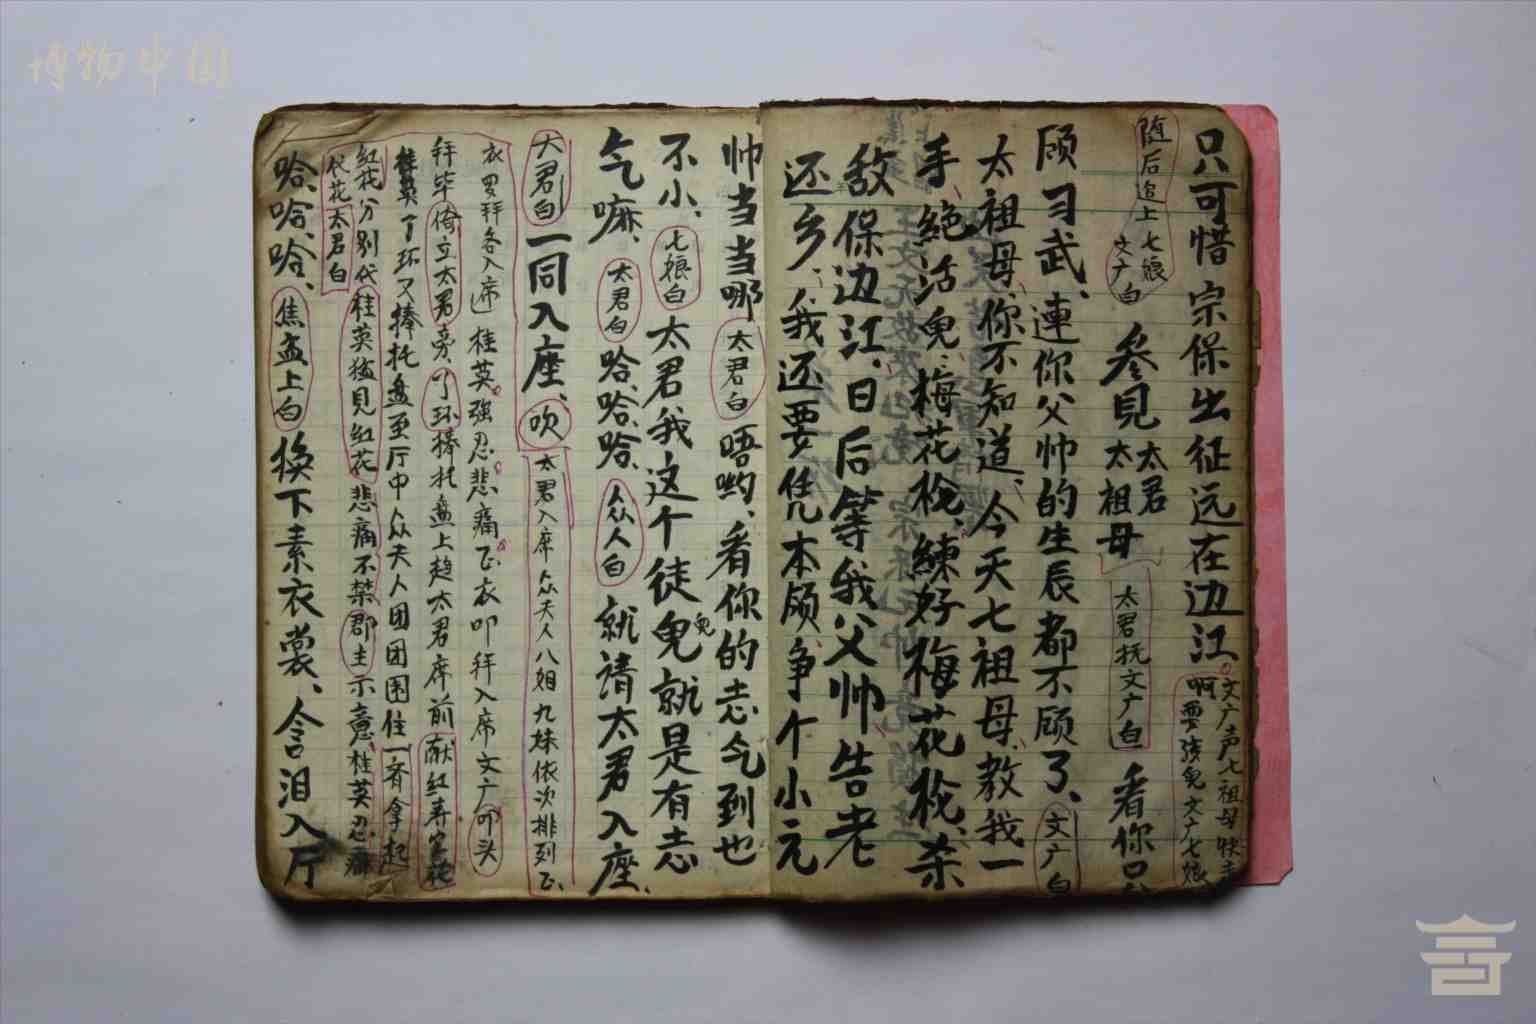 博物中国
只可惜宗保出征远在边江
啊
文广声七祖母快走
要孩児文广七娘
随后追上七娘
文广白
参見太君
太祖母
太君抚文广白
看你只
顾习武、連你父帅的生辰都不顾了、
文广白
太祖母、你不知道、今天七祖母、教我一
手、絕活皃、梅花枪、練好梅花枪、杀
敌保边江、日后等我父帅告老
还乡、我还要凭本领争个小元
帅当当哪
太君白
唔哟、看你的志气到也
不小、
七娘白
太君我这个徒皃就是有志
气嘛、
太君白
哈、哈、哈、
众人白
就請太君入座、
太君白
一同入座、
吹
太君入席众夫人八姐九妹依次排列正
衣罗拜各入席
桂英强忍悲痛正衣叩拜入席文广叩头
拜毕倚立太君旁、了环捧托盘上趋太君席前献红寿
桂英了环又捧托盘至厅中众夫人团团围住一斉拿起
红花分别代桂英猛見红花悲痛不禁郡主示意、桂英忍痛
代花太君白
哈、哈、哈、
焦孟上白
换下素衣裳、含泪入厅